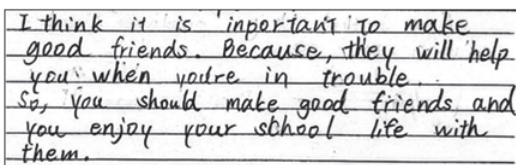 I think it is inportant to make
good friends. Because, they will help
you when you're in trouble.
So, you should make good friends and
you enjoy your school life with
them.